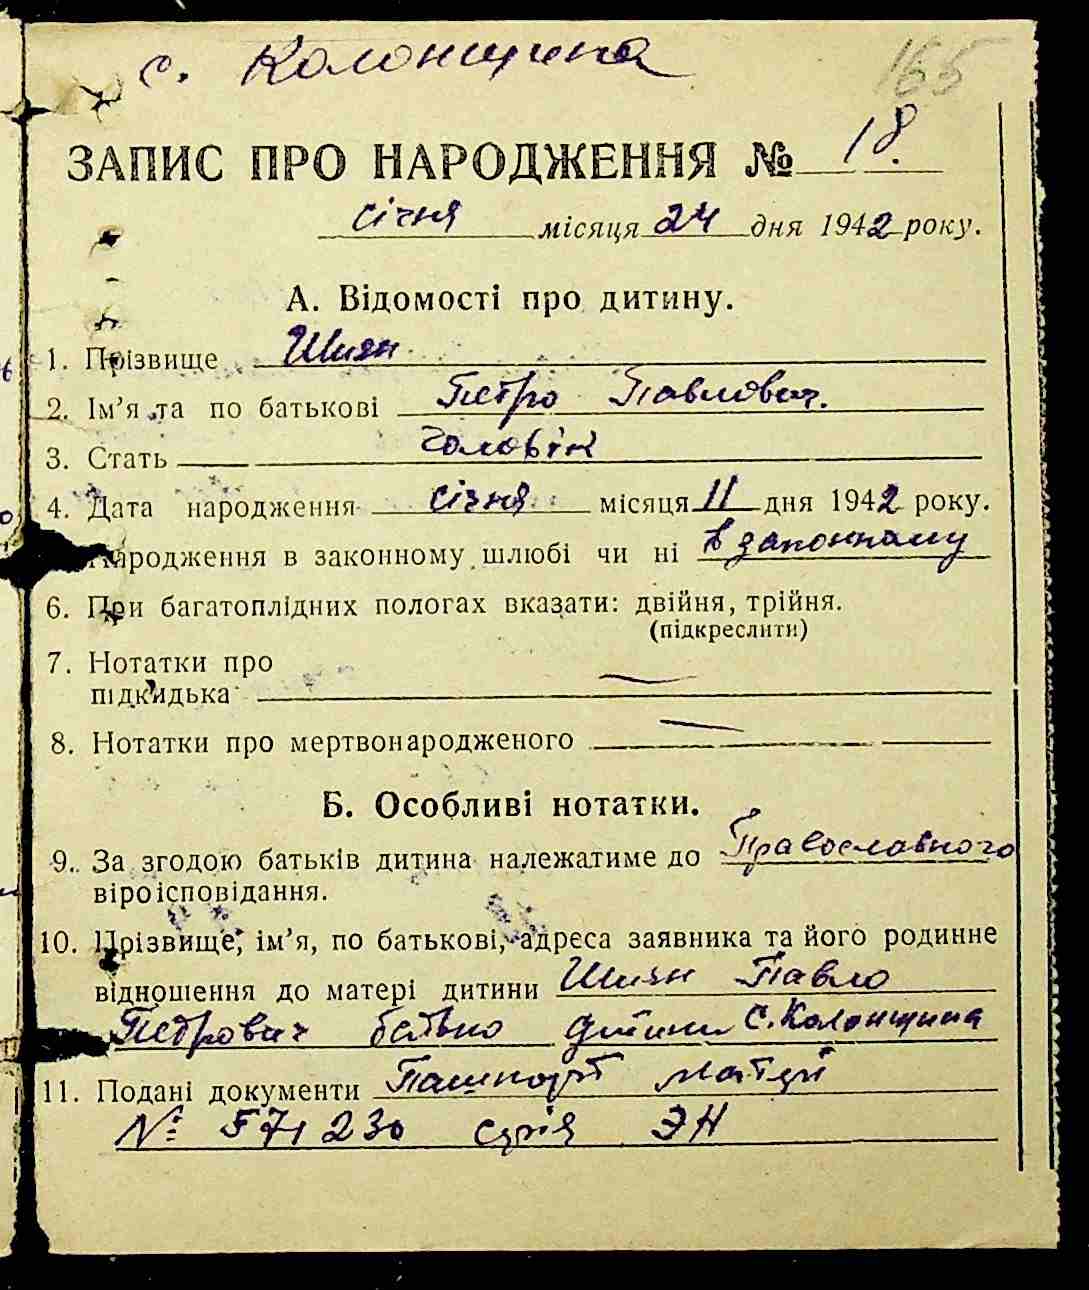 с. Колонщина
165
ЗАПИС ПРО НАРОДЖЕННЯ № 18.
січня місяця 24 дня 1942 року.
А. Відомості про дитину.
1. Прізвище Шиян
2. Ім'я та по батькові Петро Павлович.
3. Стать чоловік
4. Дата народження січня місяця 11 дня 1942 року.
Народження в законному шлюбі чи ні в законному
6. При багатоплідних пологах вказати: двійня, трійня.
(підкреслити)
7. Нотатки про
підкидька —
8. Нотатки про мертвонародженого —
Б. Особливі нотатки.
9. За згодою батьків дитина належатиме до Православного
віроісповідання.
10. Прізвище, ім'я, по батькові, адреса заявника та його родинне
відношення до матері дитини Шиян Павло
Петрович батько дитини с. Колонщина
11. Подані документи Пашпорт матері
№ 571230 серія ЭН